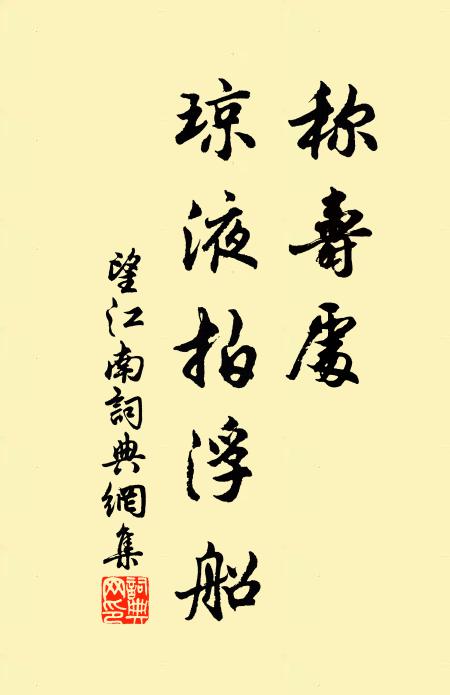 称壽處
琼液拍浮船
望江南詞典網集
詞典网印